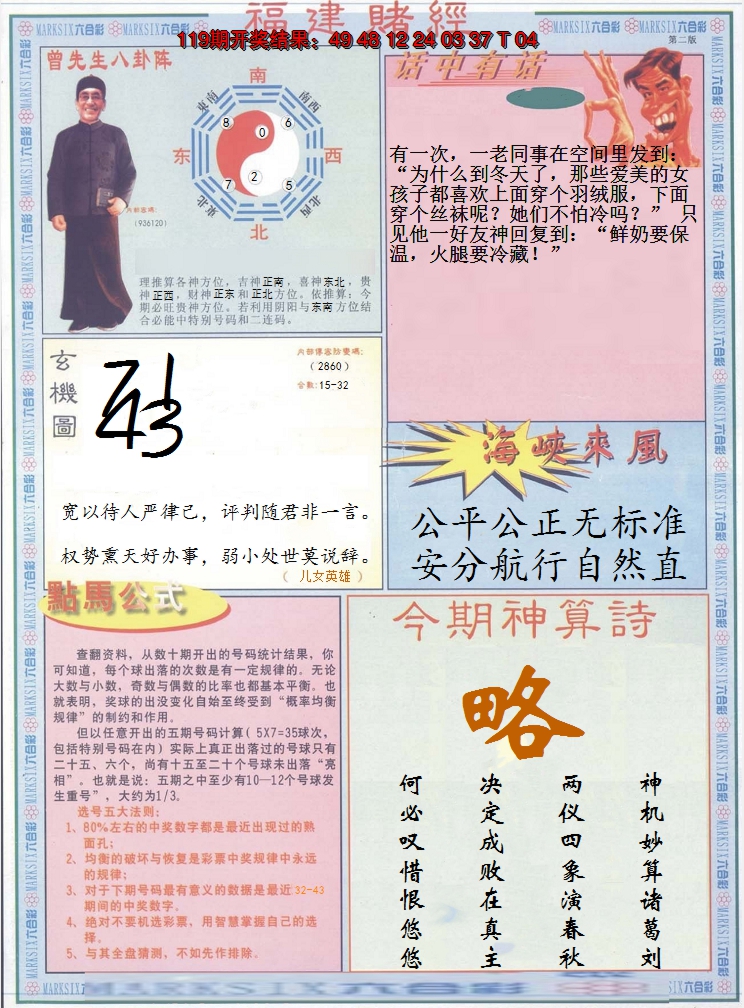 福建賭經
119期开奖结果：49 48 12 24 03 37 T 04
第二版
MARKSIX六合彩
曾先生八卦阵
南
东南
西南
东
西
东北
西北
北
8
0
6
7
2
5
内部密碼：
（936120）
理推算各神方位，吉神正南，喜神东北，贵
神正西，财神正东和正北方位。依推算：今
期必旺贵神方位。若利用阴阳与东南方位结
合必能中特别号码和二连码。
话中有话
有一次，一老同事在空间里发到：
“为什么到冬天了，那些爱美的女
孩子都喜欢上面穿个羽绒服，下面
穿个丝袜呢？她们不怕冷吗？” 只
见他一好友神回复到：“鲜奶要保
温，火腿要冷藏！”
玄機圖
（2860）
合数：15-32
宽以待人严律己，评判随君非一言。
权势熏天好办事，弱小处世莫说辞。
（ 儿女英雄 ）
海峽來風
公平公正无标准
安分航行自然直
點馬公式
查翻资料，从数十期开出的号码统计结果，你
可知道，每个球出落的次数是有一定规律的。无论
大数与小数，奇数与偶数的比率也都基本平衡。也
就表明，奖球的出没变化自始至终受到“概率均衡
规律”的制约和作用。
但以任意开出的五期号码计算（5X7=35球次，
包括特别号码在内）实际上真正出落过的号球只有
二十五、六个，尚有十五至二十个号球未出落“亮
相”。也就是说：五期之中至少有10—12个号球发
生重号”，大约为1/3。
选号五大法则：
1、80%左右的中奖数字都是最近出现过的熟
面孔；
2、均衡的破坏与恢复是彩票中奖规律中永远
的规律；
3、对于下期号码最有意义的数据是最近32-43
期间的中奖数字。
4、绝对不要机选彩票，用智慧掌握自己的选
择。
5、与其全盘猜测，不如先作排除。
今期神算詩
略
神机妙算诸葛刘
两仪四象演春秋
决定成败在真主
何必叹惜恨悠悠